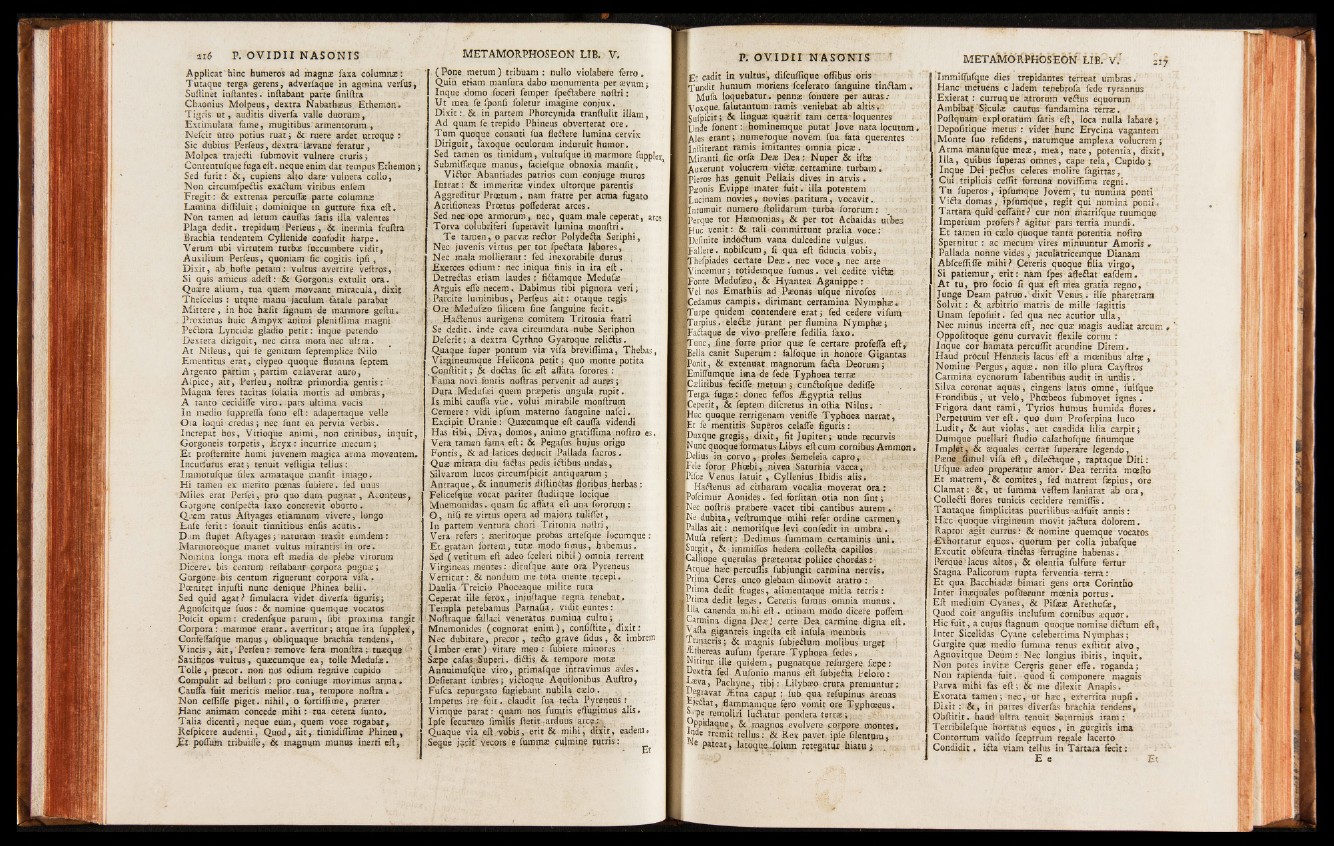 216 P. OVIDII NASONIS
Applicat hinc humeros ad magnæ saxa columnæ:
Tutaque terga gerens, adversaque in agmina versus,
Sustinet instantes. instabant parte sinistra
Chaonius Molpeus, dextra Nabathæus Ethemon.
Tigris ut, auditis diversa valle duorum,
Extimulata fame, mugitibus armentorum,
Nescit utro potius ruat; & ruere ardet utroque:
Sic dubius Perseus, dextra lævane feratur,
Molpea trajecti submovit vulnere cruris;
Contentusque fuga est. neque enim dat tempus Ethemon;
Sed furit: &, cupiens alto dare vulnera collo,
Non circumspectis exactum viribus ensem
Fregit: & extrema percussæ parte columnæ
Lamina dissiluit; dominique in gutture fixa est.
Non tamen ad letum causas satis illa valentes
Plaga dedit. trepidum Perseus, & inermia frustra
Brachia tendentem Cyllenide confodit harpe.
Verum ubi virtutem turbæ succumbere vidit,
Auxilium Perseus, quoniam sic cogitis ipsi,
Dixit, ab hoste petam: vultus avertite vestros,
Si quis amicus adest: & Gorgonis extulit ora.
Quære alium, tua quem moveant miracula, dixit
Thescelus: utque manu jaculum fatale parabat
Mittere, in hoc hæsit signum de marmore gestu.
Proximus huic Ampyx animi plenissima magni
Pectora Lyncidæ gladio petit: inque petendo
Dextera diriguit, nec citra mota nec ultra.
At Nileus, qui se genitum septemplice Nilo
Ementitus erat, clypeo quoque flumina septem
Argento partim, partim cælaverat auro,
Aspice, ait, Perseu, nostræ primordia gentis:
Magna feres tacitas solatia mortis ad umbras,
A tanto cecidisse viro. pars ultima vocis
In medio suppressa sono est: adapertaque velle
Ora loqui credas; nec sunt ea pervia verbis.
Increpat hos, Vitioque animi, non crinibus, inquit,
Gorgoneis torpetis, Eryx: incurrite mecum;
Et prosternite humi juvenem magica arma moventem.
Incursurus erat; tenuit vestigia tellus:
Immotusque silex armataque mansit imago.
Hi tamen ex merito pœnas subiere. sed unus
Miles erat Persei, pro quo dum pugnat, Aconteus,
Gorgone conspecta saxo concrevit oborto.
Quem ratus Astyages etiamnum vivere, longo
Ense ferit: sonuit tinnitibus ensis acutis.
Dum stupet Astyages; naturam traxit eamdem:
Marmoreoque manet vultus mirantis in ore.
Nomina longa mora est media de plebe virorum
Dicere. bis centum restabant corpora pugnæ;
Gorgone bis centum riguerunt corpora visa.
Pœnitet injusti nunc denique Phinea belli.
Sed quid agat? simulacra videt diversa figuris;
Agnoscitque suos: & nomine quemque vocatos
Poscit opem: credensque parum, sibi proxima tangit
Corpora: marmor erant. avertitur; atque ita supplex,
Confessasque manus, obliquaque brachia tendens,
Vincis, ait, Perseu: remove fera monstra; tuæque
Saxificos vultus, quæcumque ea, tolle Medusæ.
Tolle, precor. non nos odium regnive cupido
Compulit ad bellum: pro conjuge movimus arma.
Causa fuit meritis melior tua, tempore nostra.
Non cessisse piget. nihil, o fortissime, præter
Hanc animam concede mihi: tua cetera sunto.
Talia dicenti, neque eum, quem voce rogabat,
Respicere audenti, Quod, ait, timidissime Phineu,
Et possum tribuisse, & magnum munus inerti est,
METAMORPHOSEON LIB. V.
(Pone metum) tribuam: nullo violabere ferro.
Quin etiam mansura dabo monumenta per ævum;
Inque domo soceri semper spectabere nostri:
Ut mea se sponsi soletur imagine conjux.
Dixit: & in partem Phorcynida transtulit illam,
Ad quam se trepido Phineus obverterat ore.
Tum quoque conanti sua flectere lumina cervix
Diriguit, saxoque oculorum induruit humor.
Sed tamen os timidum, vultusque in marmore supplex,
Submissæque manus, faciesque obnoxia mansit.
Victor Abantiades patrios cum conjuge muros
Intrat: & immeritæ vindex ultorque parentis
Aggreditur Prœtum. nam fratre per arma fugato
Acrisioneas Prœtus possederat arces.
Sed nec ope armorum, nec, quam male ceperat, arce
Torva colubriferi superavit lumina monstri.
Te tamen, o parvæ rector Polydecta Seriphi,
Nec juvenis virtus per tot spectata labores,
Nec mala mollierant: sed inexorabile durus
Exerces odium: nec iniqua finis in ira est.
Detrectas etiam laudes: fictamque Medusæ
Arguis esse necem. Dabimus tibi pignora veri;
Parcite luminibus, Perseus ait: oraque regis
Ore Medusæo silicem sine sanguine fecit.
Hactenus aurigenæ comitem Tritonia fratri
Se dedit. inde cava circumdata nube Seriphon
Deserit; a dextra Cythno Gyaroque relictis.
Quaque super pontum via visa brevissima, Thebas,
Virgineumque Helicona petit; quo monte potita
Constitit; & doctas sic est affata sorores:
Fama novi fontis nostras pervenit ad aures;
Dura Medusæi quem præpetis ungula rupit.
Is mihi causa viæ. volui mirabile monstrum
Cernere: vidi ipsum materno sanguine nasci.
Excipit Uranie: Quæcumque est causa videndi
Has tibi, Diva, domos, animo gratissima nostro es.
Vera tamen fama est: & Pegasus hujus origo
Fontis, & ad latices deducit Pallada sacros.
Quæ mirata diu factas pedis ictibus undas,
Silvarum lucos circumspicit antiquarum;
Antraque, & innumeris distinctas floribus herbas:
Felicesque vocat pariter studiique locique
Mnemonidas. quam sic affata est una sororum:
O, nisi te virtus opera ad majora tulisset,
In partem ventura chori Tritonia nostri,
Vera refers: meritoque probas artesque locumque:
Et gratam sortem, tutæ modo simus, habemus.
Sed (vetitum est adeo sceleri nihil) omnia terrent
Virgineas mentes: dirusque ante ora Pyreneus
Vertitur: & nondum me tota mente recepi.
Daulia Treïcio Phoceaque milite rura
Ceperat ille ferox, injustaque regna tenebat.
Templa petebamus Parnasia. vidit euntes:
Nostraque fallaci veneratus numina cultu;
Mnemonides (cognorat enim), consistite, dixit:
Nec dubitate, precor, tecto grave sidus, & imbrem
(Imber erat) vitare meo: subiere minores
Sæpe casas Superi. dictis & tempore motæ
Annuimusque viro, primasque intravimus ædes.
Desierant imbres; victoque Aquilonibus Austro,
Fusca repurgato fugiebant nubila cælo.
Impetus ire fuit. claudit sua tecta Pyreneus:
Vimque parat: quam nos sumtis effugimus alis.
Ipse secuturo similis stetit arduus arce:
Quaque via est vobis, erit & mihi, dixit, eadem.
Seque jacit vecors e summæ culmine turris:
Et
P. OVIDII NASONIS
Et cadit in vultus, discussique ossibus oris
Tundit humum moriens scelerato sanguine tinctam.
Musa loquebatur. pennæ sonuere per auras:
Voxque salutantum ramis veniebat ab altis.
Suspicit; & linguæ quærit tam certa loquentes
Unde sonent: hominemque putat Jove nata locutum.
Ales erant; numeroque novem sua fata querentes
Institerant ramis imitantes omnia picæ.
Miranti sic orsa Deæ Dea: Nuper & istæ
Auxerunt volucrem victæ certamine turbam.
Pieros has genuit Pellæis dives in arvis.
Pæonis Evippe mater fuit. illa potentem
Lucinam novies, novies paritura, vocavit.
Intumuit numero stolidarum turba sororum:
Perque tot Hæmonias, & per tot Achaidas urbes
Huc venit: & tali committunt prælia voce:
Desinite indoctum vana dulcedine vulgus
Fallere. nobiscum, si qua est fiducia vobis,
Thespiades certate Deæ. nec voce, nec arte
Vincemur; totidemque sumus. vel cedite victæ
Fonte Medusæo, & Hyantea Aganippe:
Vel nos Emathiis ad Pæonas usque nivosos
Cedamus campis. dirimant certamina Nymphæ.
Turpe quidem contendere erat; sed cedere visum
Turpius. electæ jurant per flumina Nymphæ;
Factaque de vivo pressere sedilia saxo.
Tunc, sine sorte prior quæ se certare professa est,
Bella canit Superum: falsoque in honore Gigantas
Ponit, & extenuat magnorum facta Deorum;
Emissumque ima de sede Typhoea terræ
Cælitibus fecisse metum; cunctosque dedisse
Terga fugæ: donec fessos Ægyptia tellus
Ceperit, & septem discretus in ostia Nilus.
Hoc quoque terrigenam venisse Typhoea narrat,
Et se mentitis Superos celasse figuris:
Duxque gregis, dixit, fit Jupiter; unde recurvis
Nunc quoque formatus Libys est cum cornibus Ammon.
Delius in corvo, proles Semeleia capro,
Fele soror Phœbi, nivea Saturnia vacca,
Pisce Venus latuit, Cyllenius Ibidis alis.
Hactenus ad citharam vocalia moverat ora:
Poscimur Aonides. sed forsitan otia non sint;
Nec nostris præbere vacet tibi cantibus aurem.
Ne dubita, vestrumque mihi refer ordine carmen,
Pallas ait: nemorisque levi consedit in umbra.
Musa refert: Dedimus summam certaminis uni.
Surgit, & immissos hedera collecta capillos
Calliope querulas prætentat pollice chordas:
Atque hæc percussis subjungit carmina nervis.
Prima Ceres unco glebam dimovit aratro:
Prima dedit fruges, alimentaque mitia terris:
Prima dedit leges. Cereris sumus omnia munus.
Illa canenda mihi est. utinam modo dicere possem
Carmina digna Deæ! certe Dea carmine digna est.
Vasta giganteis ingesta est insula membris
Trinacris; & magnis subjectum molibus urget
Æthereas ausum sperare Typhoea sedes.
Nititur ille quidem, pugnatque resurgere sæpe:
Dextra sed Ausonio manus est subjecta Peloro:
Læva, Pachyne, tibi: Lilybæo crura premuntur:
Degravat Ætna caput: sub qua resupinus arenas
Ejectat, flammamque fero vomit ore Typhœeus.
Sæpe remoliri luctatur pondera terræ;
Oppidaque, & magnos evolvere corpore montes.
Inde tremit tellus: & Rex pavet ipse silentum,
Ne pateat, latoque solum retegatur hiatu;
METAMORPHOSEON LIB. V. 217
Immissusque dies trepidantes terreat umbras.
Hanc metuens cladem tenebrosa sede tyrannus
Exierat: curruque atrorum vectus equorum
Ambibat Siculæ cautus fundamina terræ.
Postquam exploratum satis est, loca nulla labare;
Depositique metus: videt hunc Erycina vagantem
Monte suo residens, natumque amplexa volucrem;
Arma manusque meæ, mea, nate, potentia, dixit,
Illa, quibus superas omnes, cape tela, Cupido;
Inque Dei pectus celeres molire sagittas,
Cui triplicis cessit fortuna novissima regni.
Tu superos, ipsumque Jovem, tu numina ponti
Victa domas, ipsumque, regit qui numina ponti.
Tartara quid cessant? cur non matrisque tuumque
Imperium profers? agitur pars tertia mundi.
Et tamen in cælo quoque tanta potentia nostro
Spernitur: ac mecum vires minuuntur Amoris.
Pallada nonne vides, jaculatricemque Dianam
Abscessisse mihi? Cereris quoque filia virgo,
Si patiemur, erit: nam spes affectat easdem.
At tu, pro socio si qua est mea gratia regno,
Junge Deam patruo. dixit Venus. ille pharetram
Solvit: & arbitrio matris de mille sagittis
Unam seposuit. sed qua nec acutior ulla,
Nec minus incerta est, nec quæ magis audiat arcum.
Oppositoque genu curvavit flexile cornu:
Inque cor hamata percussit arundine Ditem.
Haud procul Hennæis lacus est a mœnibus altæ,
Nomine Pergus, aquæ. non illo plura Cayster
Carmina cycnorum labentibus audit in undis.
Silva coronat aquas, cingens latus omne, suisque
Frondibus, ut velo, Phœbeos submovet ignes.
Frigora dant rami, Tyrios humus humida flores.
Perpetuum ver est. quo dum Proserpina luco
Ludit, & aut violas, aut candida lilia carpit;
Dumque puellari studio calathosque sinumque
Implet, & æquales certat superare legendo,
Pæne simul visa est, dilectaque, raptaque Diti:
Usque adeo properatur amor. Dea territa mœsto
Et matrem, & comites, sed matrem sæpius, ore
Clamat: &, ut summa vestem laniarat ab ora,
Collecti flores tunicis cecidere remissis.
Tantaque simplicitas puerilibus adfuit annis:
Hæc quoque virgineum movit jactura dolorem.
Raptor agit currus: & nomine quemque vocatos
Exhortatur equos. quorum per colla jubasque
Excutit obscura tinctas ferrugine habenas.
Perque lacus altos, & olentia sulfure fertur
Stagna Palicorum rupta ferventia terra:
Et qua Bacchiadæ bimari gens orta Corintho
Inter inæquales posuerunt mœnia portus.
Est medium Cyanes, & Pisææ Arethusæ,
Quod coit angustis inclusum cornibus æquor.
Hic fuit, a cujus stagnum quoque nomine dictum est,
Inter Sicelidas Cyane celeberrima Nymphas;
Gurgite quæ medio summa tenus exstitit alvo,
Agnovitque Deum: Nec longius ibitis, inquit.
Non potes invitæ Cereris gener esse. roganda;
Non rapienda fuit. quod si componere magnis
Parva mihi fas est; & me dilexit Anapis.
Exorata tamen; nec, ut hæc, exterrita nupsi.
Dixit: &, in partes diversas brachia tendens,
Obstitit. haud ultra tenuit Saturnius iram:
Terribilesque hortatus equos, in gurgitis ima
Contortum valido sceptrum regale lacerto
Condidit. icta viam tellus in Tartara fecit:
E e Et